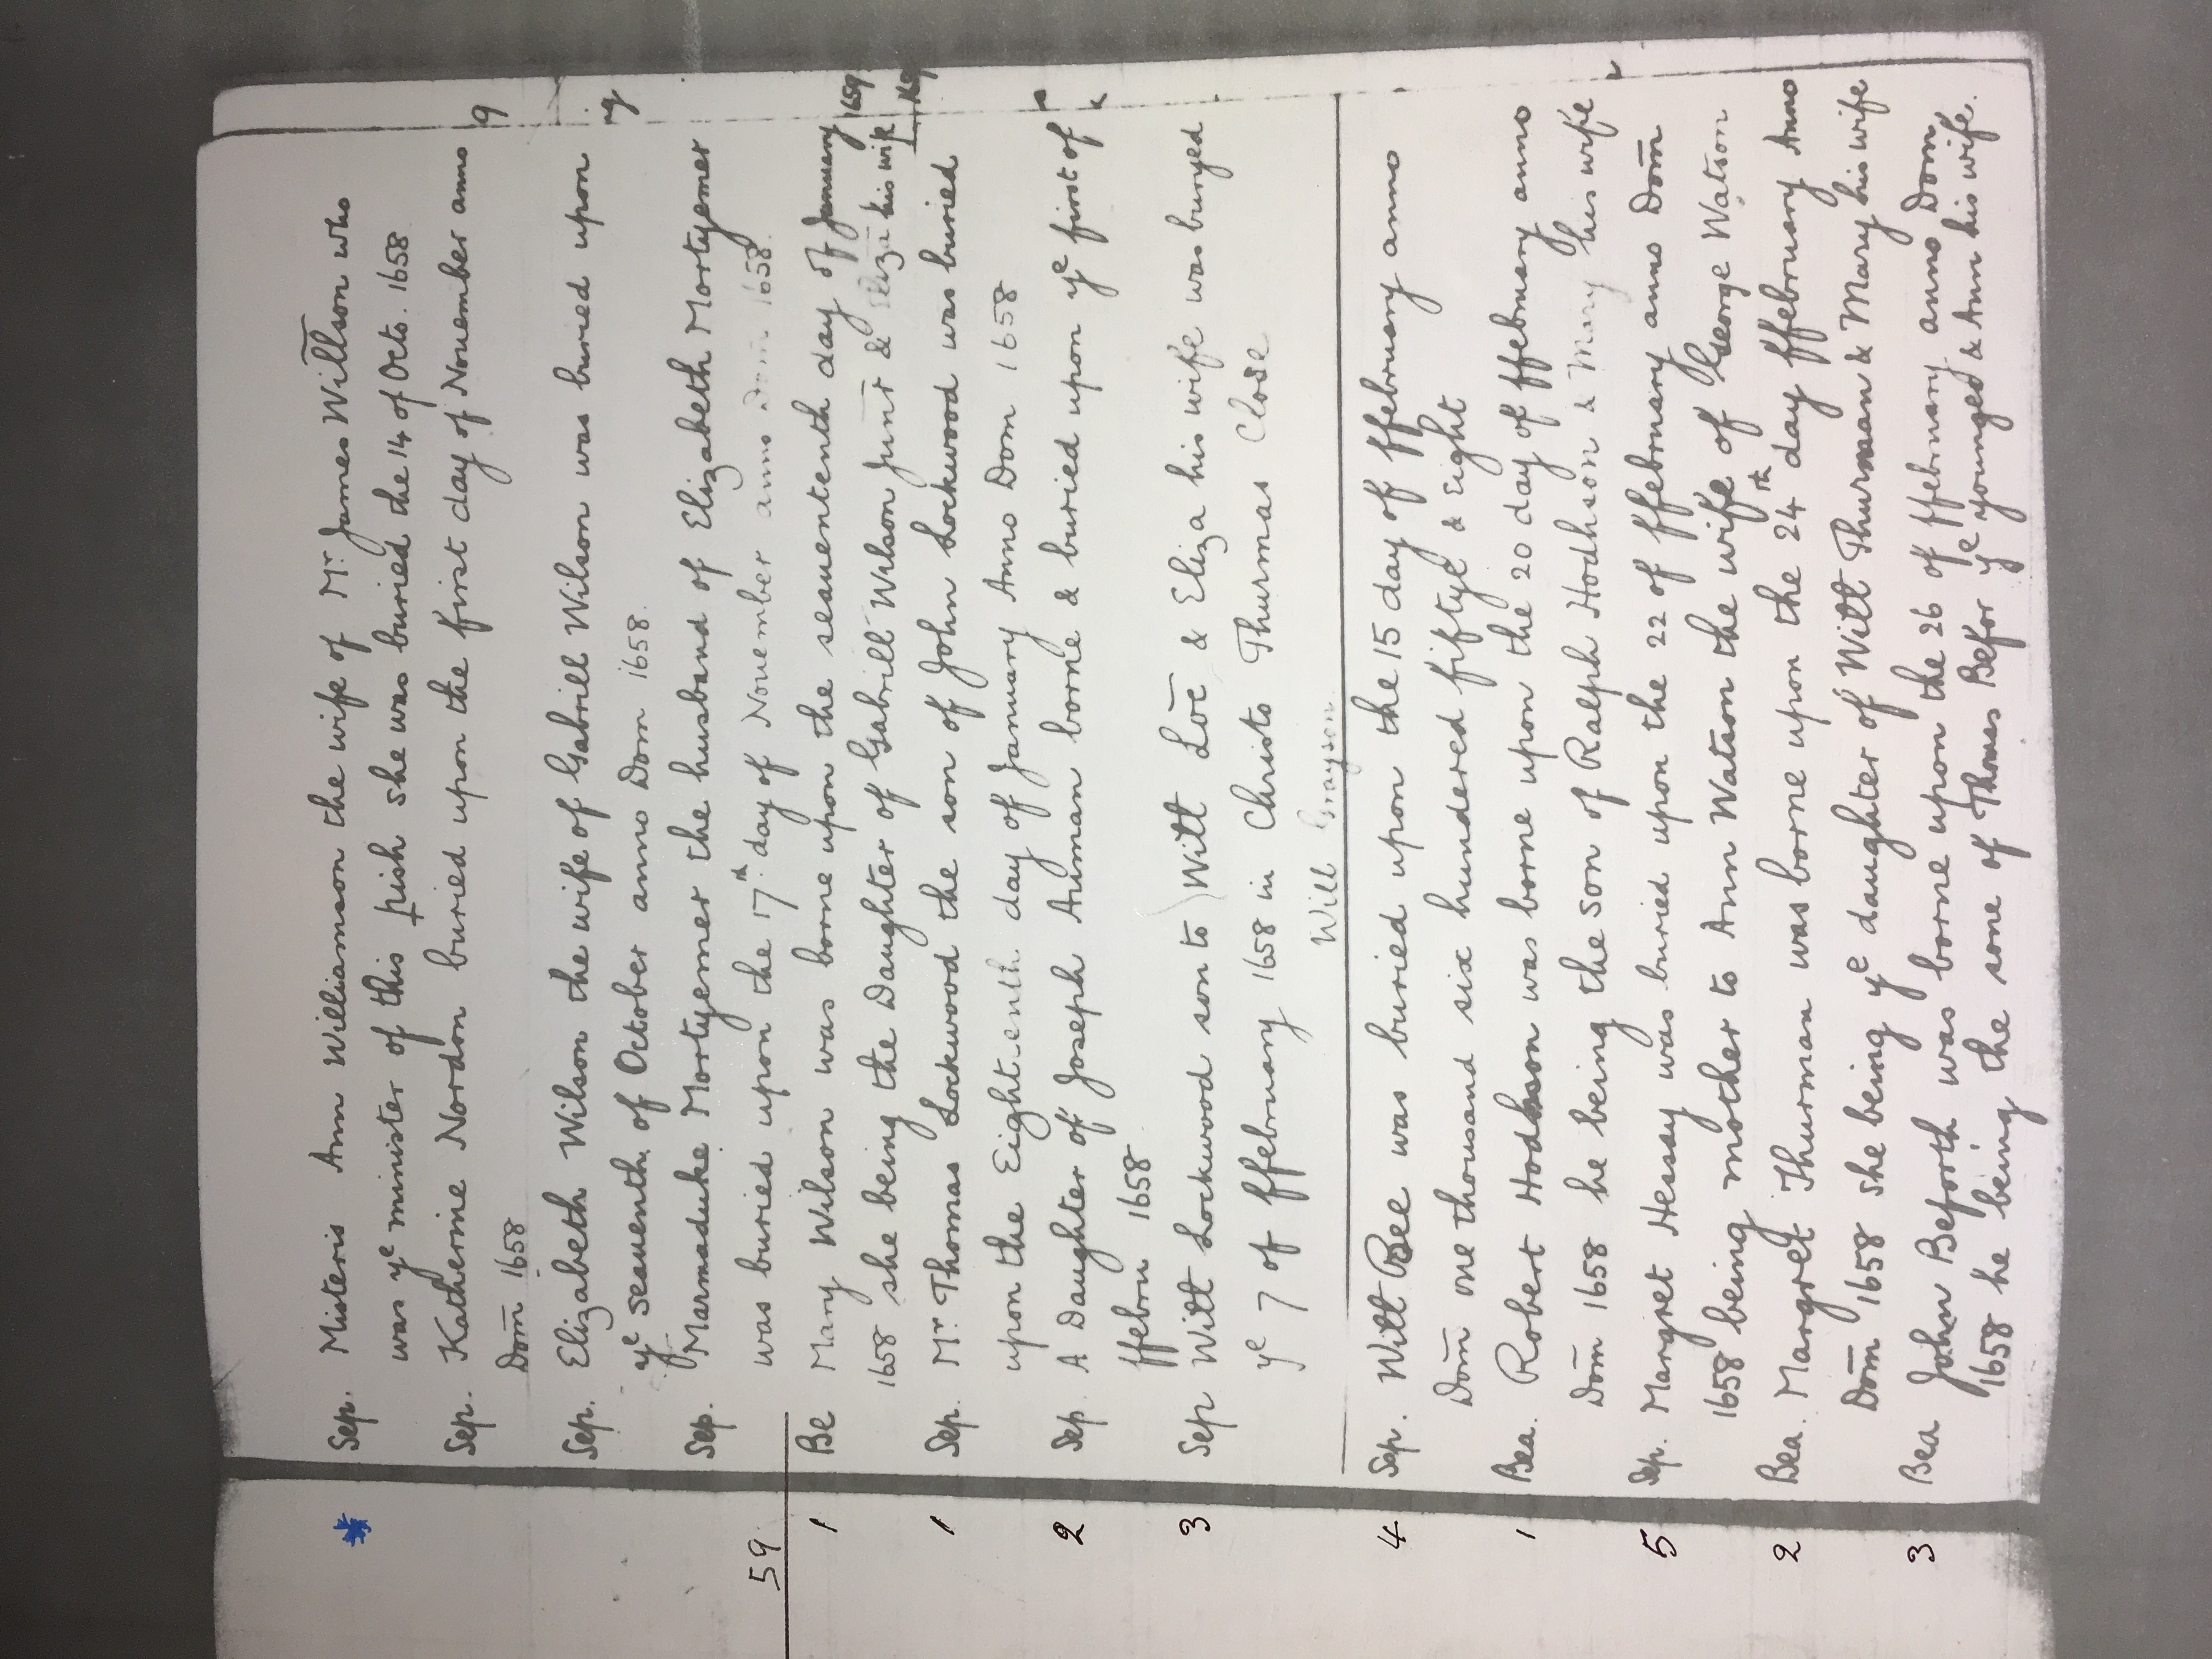 * Sep. Misteris Ann Williamson the wife of Mr James Willson who
was ye minister of this pish she was buried the 14 of Octo. 1658
Sep. Katherine Nordon buried upon the first day of Nouember anno
Dom̄ 1658
9
Sep. Elizabeth Wilson the wife of Gabrill Wilson was buried upon
ye seauenth of October anno Dom 1658.
Sep. Marmaduke Mortyemer the husband of Elizabeth Mortyemer
was buried upon the 17th day of Nouember anno Dom 1658.
59
1 Be Mary Wilson was borne upon the seauententh day of January 1659
1658 she being the Daughter of Gabrill Wilson Junr & Eliza his wife
1 Sep. Mr Thomas Lockwood the son of John Lockwood was buried
upon the Eightenth day of January Anno Dom 1658
2 Sep. A Daughter of Joseph Auman borne & buried upon ye first of
ffebru 1658
3 Sep Witt Lockwood son to Witt Loc̄ & Eliza his wife was buryed
ye 7 of ffebruary 1658 in Christo Thurmas Close
Will Grayson
4 Sep. Witt Bee was buried upon the 15 day of ffebruary anno
Dom̄ one thousand six hundered fiftye & Eight
1 Bea. Robert Hodhson was borne upon the 20 day of ffebruary anno
Dom̄ 1658 he being the son of Ralph Hodhson & Mary his wife
5 Sep. Margret Hessay was buried upon the 22 of ffebruary anno Dom̄
1658 being mother to Ann Watson the wife of George Watson
2 Bea. Margret Thurman was borne upon the 24th day ffebruary Anno
Dom̄ 1658 she being ye daughter of Witt Thurman & Mary his wife
3 Bea John Beforth was borne upon the 26 of ffebruary anno Dom,
1658 he being the sone of Thomas Befor ye younged & Ann his wife.